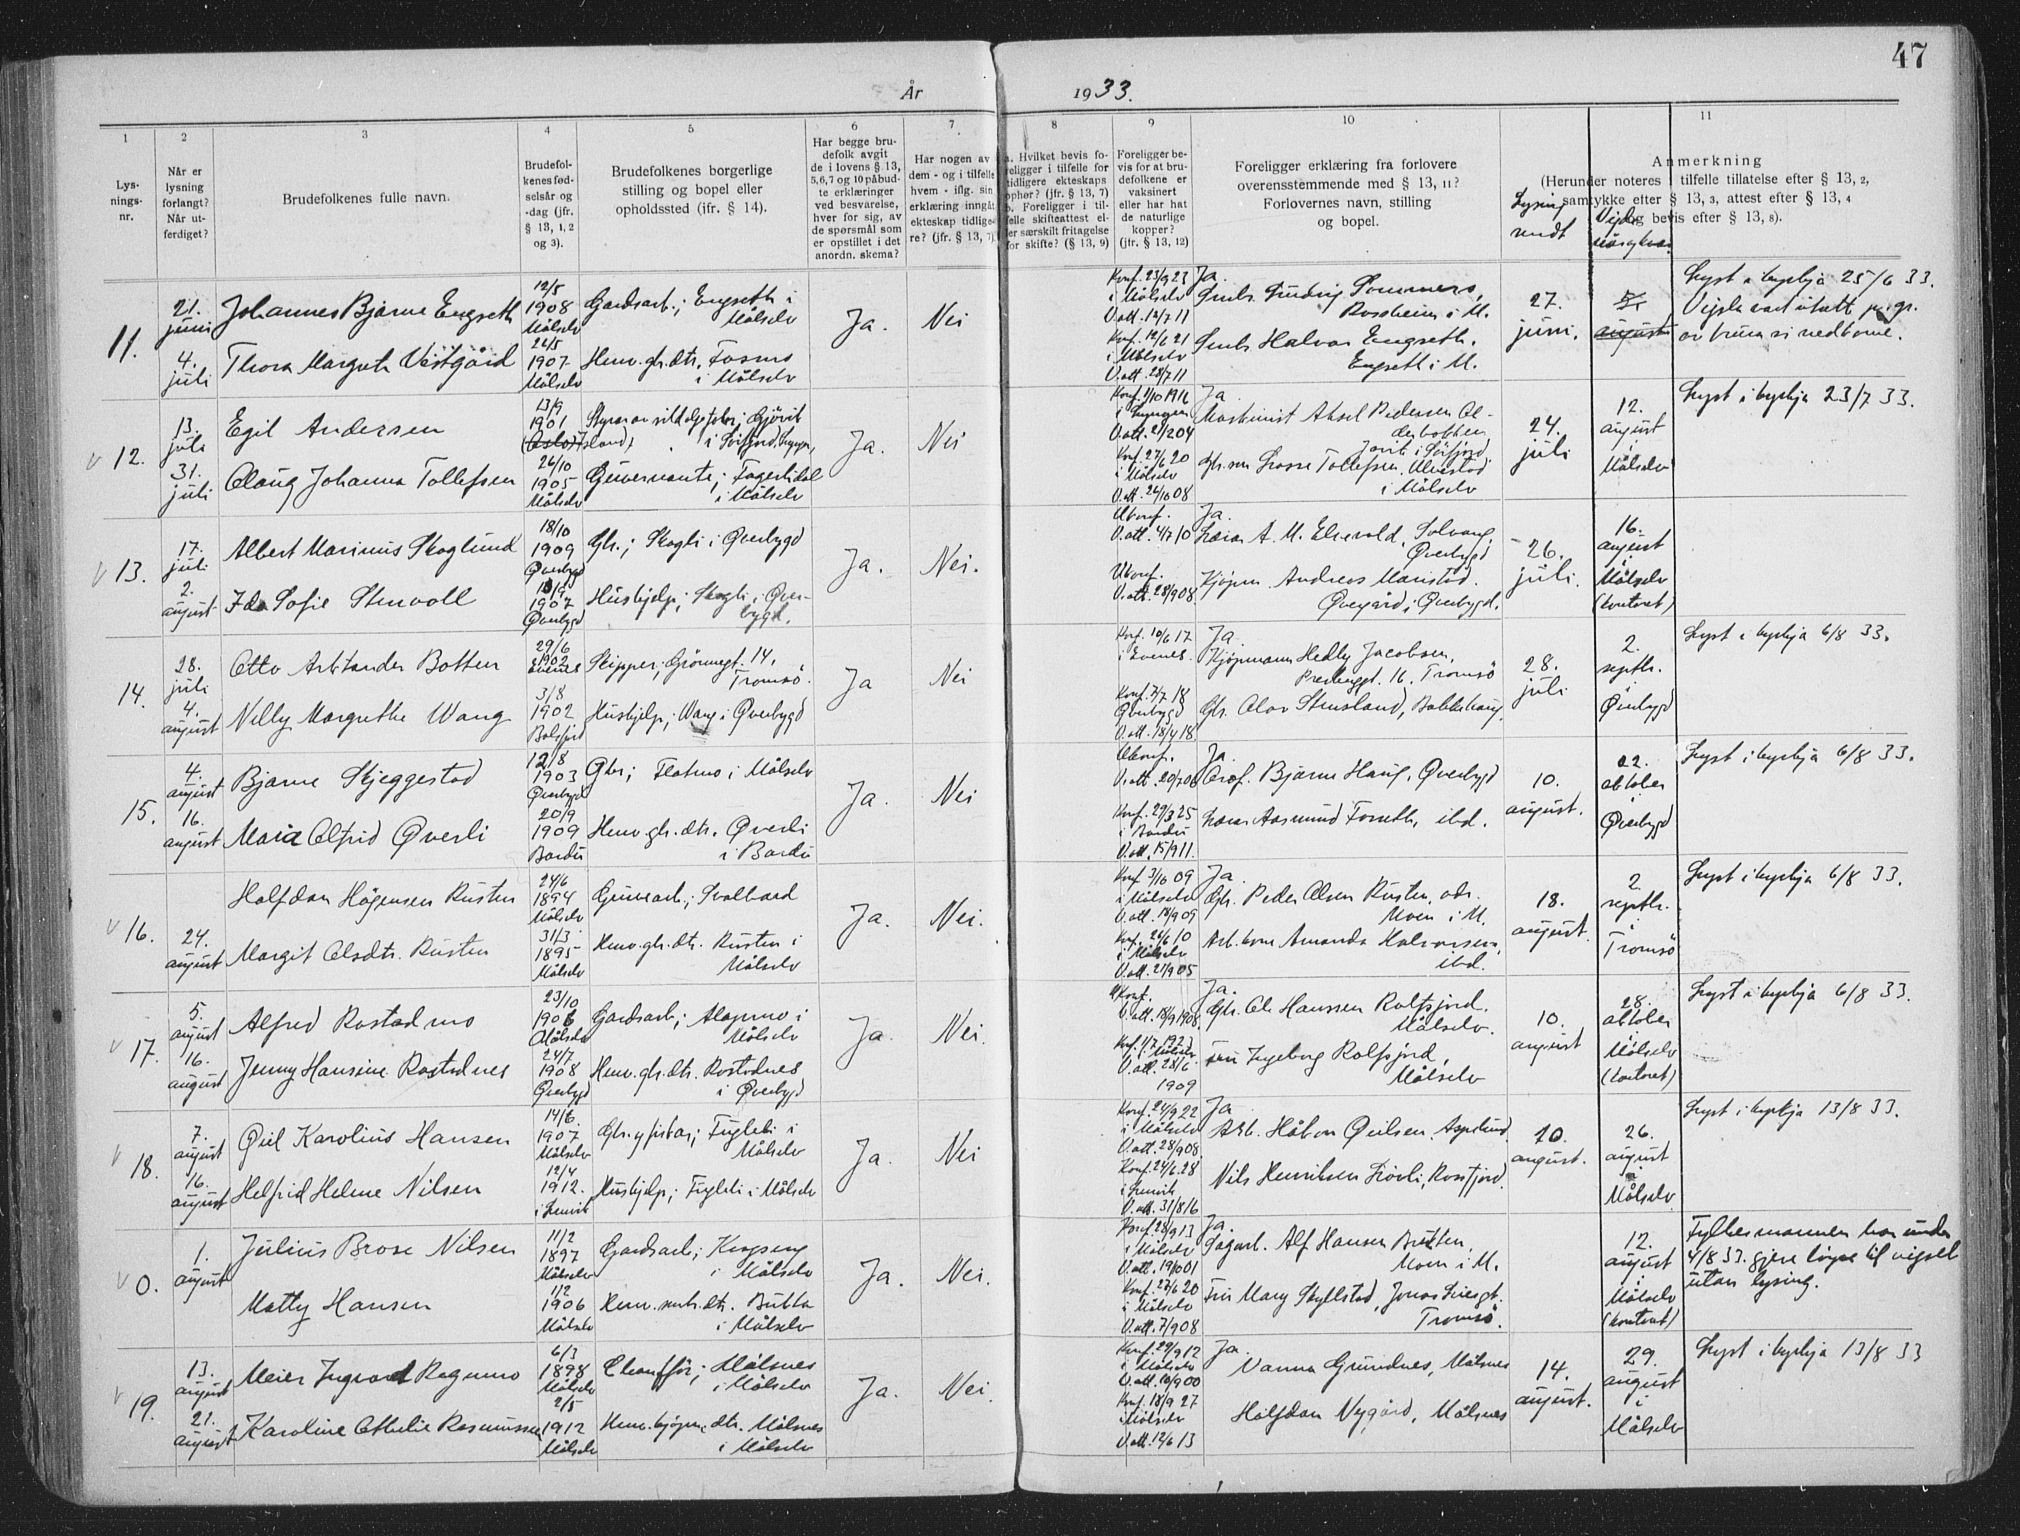 47
År 1933.
1
2
3
4
5
6
7
8
9
10
11
Lys-
nings-
nr.
Når er
lysning
forlangt?
Når ut-
ferdiget?
Brudefolkenes fulle navn.
Brudefol-
kenes fød-
selsår og
-dag (jfr.
§ 13, 1, 2
og 3).
Brudefolkenes borgerlige
stilling og bopel eller
opholdssted (ifr. § 14).
Har begge bru-
defolk avgit
de i lovens § 13,
5,6,7 og 10 påbud-
te erklæringer
ved besvarelse,
hver for sig, av
de spørsmål som
er opstillet i det
anordn. skema?
Har nogen av
dem - og i tilfelle
hvem - iflg. sin
erklæring inngåt
ekteskap tidlige-
re? (jfr. § 13, 7)
a. Hvilket bevis fo-
religger i tilfelle for
tidligere ekteskaps
ophør? (jfr. § 13, 7)
b. Foreligger i til-
felle skifteattest el-
ler særskilt fritagelse
for skifte? (§ 13, 9)
Foreligger be-
vis for at bru-
defolkene er
vaksinert
eller har hat
de naturlige
kopper?
(jfr. § 13, 12)
Foreligger erklæring fra forlovere
overensstemmende med § 13, 11?
Forlovernes navn, stilling
og bopel.
Lysing
sendt
Anmerkning
(Herunder noteres i tilfelle tillatelse efter § 13, 2,
samtykke efter § 13, 3, attest efter § 13, 4
og bevis efter § 13, 8).
11.
21.
juni
4.
juli
Johannes Bjarne Engseth
Thora Margrete Vestgård
12/5
1908
Målselv
24/5
1907
Målselv
Gardsarb.; Engseth i
Målselv
Hmv. gb. dtr. Fosmo
i Målselv
Ja.
Nei
Konf. 23/9 23
i Målselv
V.att. 12/7 11
Konf. 12/6 21
i Målselv
V.att. 28/7 11
Ja.
Gmbr. Ludvig Sommero,
Rossheim i M.
Gmbr. Halvor Engseth.
Engseth i M.
27.
juni.
5/
august
Lyst i kyrkja 25/6 33.
Vigsla vart utsatt p. gr.
av brura si nedkome.
12.
13.
juli
31.
juli
Egil Andersen
Olaug Johanna Tollefsen
13/9
1901
26/10
1905
Målselv
Guvernante; Fagerlidal
i Målselv
Ja.
Nei
Konf. 1/10 1916
i Lyngen
V.att. 2/2 04
Konf. 27/6 20
i Målselv
V.att. 24/10 08
Ja
Maskinist Aksel Pedersen Ol-
derbakken
Gb. son Lasse Tollefsen, Ulvestad
i Målselv
24.
juli
12.
august
i
Målselv
Lyst i kyrkja 23/7 33.
13.
17.
juli
2.
august
Albert Marinus Skoglund
Ida Sofie Stenvoll
18/10
1909
Øverbygd
1907
Øverbygd
Gbr.; Skogli i Øverbygd
Hushjelp; Skogli i Øver-
bygd.
Ja.
Nei.
Ukonf.
V.att. 4/7 10
Ukonf.
V.att. 28/9 08
Ja.
Lærar A. M. Elvevold, Solvang,
Øverbygd
Kjøpm. Andreas Maristad.
Øvergård i Øverbygd.
26.
juli.
16.
august
i
Målselv
(kontoret)
14.
28.
juli
4.
august
Otto Arbtander Botten
Nelly Margrethe Wang
29/6
1902
Evenes
3/8
1902
Balsfjord
Skipper; Grønnegt. 14,
Tromsö.
Hushjelp; Wang i Øverbygd
Ja
Nei
Konf. 10/6 17
i Evenes.
Konf. 7/7 18
Øverbygd
V.att. 18/4 18
Ja.
Kjøpmann Hedly Jacobsen,
Prestenggt. 16. Tromsö
Gb. Olav Stensland, Bakkehaug
28.
juli
2.
septbr.
i
Øverbygd
Lyst i kyrkja 6/8 33.
15.
4.
august
16.
august
Bjarne Skjeggestad
Maria Alfrid Øverli
12/8
1903
Øverbygd
20/9
1909
Bardu
Gbr; Flatmo i Målselv
Hmv. gb. dtr. Øverli
i Bardu
Ja.
Nei
Ukonf.
Konf. 27/9 25
i Bardu
V.att. 15/9 11.
Ja.
Bjarne Haug, Øverbygd
Lærar Aasmund Forseth, ibd.
10.
august.
22.
oktober
i
Øverbygd
Lyst i kyrkja 6/8 33.
16.
24.
august
Halfdan Hågensen Rusten
Margit Olsdtr. Rusten
24/6
1894
Målselv
31/3
1895
Målselv
Gruvearb.; Svalbard
Hmv. gb. dtr. Rusten i
Målselv
Ja.
Nei.
Konf. 3/10 09
i Målselv
V.att. 18/9 09
Konf. 26/6 10
i Målselv
V.att. 21/9 05
Ja.
Gbr. Peder Olsen Rusten, adr.
Moen i M.
Arb. kone Amanda Halvorsen,
ibd.
18.
august.
2.
septbr.
i
Tromsö
Lyst i kyrkja 6/8 33.
17.
5.
august
16.
august
Alfred Rostadmo
Jenny Hansine Rostadnes
23/10
1906
Målselv
24/7
1908
Øverbygd
Gardsarb; Alapmo i
Målselv
Hmv. gb. dtr. Rostadnes
i Øverbygd
Ja.
Nei.
Ukonf.
V.att. 18/9 1908
Konf. 1/7 1923
i Målselv
V.att. 28/6
1909
Ja.
Gbr. Ole Hanssen Rolfsjord.
Målselv.
Fru Ingeborg Rolfsjord,
Målselv
10.
august
28.
oktober
i
Målselv
(kontoret)
Lyst i kyrkja 6/8 33.
18.
7.
august
16.
august
Øiel Karolius Hansen
Helfrid Helene Nilsen
14/6.
1907
Målselv
12/4
1912.
i Lenvik
Gbr. og fiskar; Fugleli i
Målselv
Hushjelp; Fugleli i Målselv
Ja.
Nei
Konf. 24/9 22
i Målselv
V.att. 28/9 08.
Konf. 24/6 28
i Lenvik
V.att. 31/8 16
Ja
Arb. Håkon Øielsen, Aspelund
Nils Henriksen Liavli, Rossfjord.
10.
august.
26.
august
i
Målselv
Lyst i kyrkja 13/8 33.
0.
1.
august
Julius Brose Nilsen
Matty Hansen
11/2
1897
Målselv
1/2
1906
Målselv
Gardsarb; Kongseng
i Målselv
Hmv. smbr. dtr. Butta
i Målselv
Ja.
Nei.
Konf. 28/9 13
i Målselv
V.att. 19/10 01
Konf. 27/6 20
i Målselv
V.att. 7/9 08
Ja.
Sagarb. Alf Hansen Butten,
Moen i M.
Fru Mary Skyllstad, Jonas Liesgt.
Tromsö.
12.
august
i
Målselv
(kontoret)
Fylkesmannen har under
4/8 33. gjeve løyve til vigsel
utan lysing.
19.
13.
august
21.
august
Meier Ingvard Rognmo
Karoline Othelie Rasmussen
6/3
1898
Målselv
2/5
1912
Målselv
Chauffør; Målsnes
i Målselv
Hmv. kjøpm. dtr. Målsnes
i Målselv
Ja.
Nei.
Konf. 29/9 12
i Målselv
V.att. 10/9 00
Konf. 18/9 27
i Målselv
V.att. 12/6 13
Ja.
Vanna Grundnes, Målsnes
Halfdan Nygård, Målsnes
14.
august.
29.
august
i
Målselv
Lyst i kyrkja 13/8 33